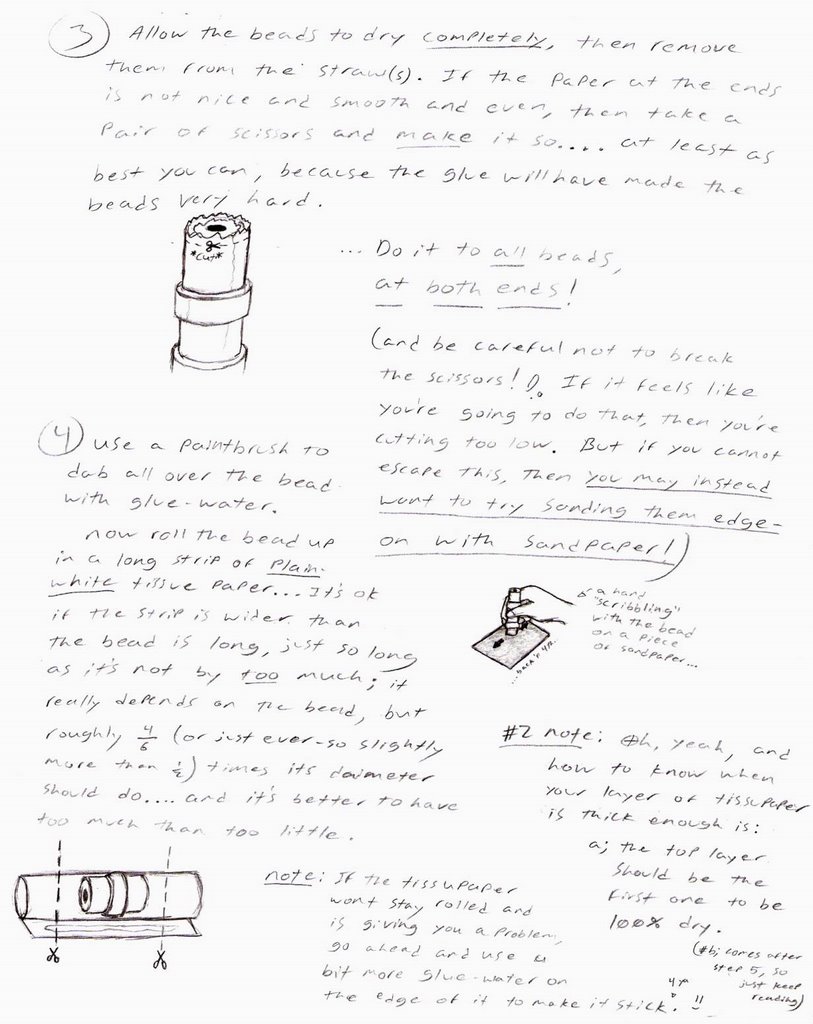 3 Allow the beads to dry completely, then remove
them from the straw(s). If the paper at the ends
is not nice and smooth and even, then take a
pair of scissors and make it so.... at least as
best you can, because the glue will have made the
beads very hard.
*Cut*
... Do it to all beads,
at both ends!
(and be careful not to break
the scissors! If it feels like
you're going to do that, then you're
cutting too low. But if you cannot
escape this, then you may instead
want to try sanding them edge-
on with sandpaper!)
a hand
"scribbling"
with the bead
on a piece
of sandpaper...
4 use a paintbrush to
dab all over the bead
with glue-water.
now roll the bead up
in a long strip of plain-
white tissue paper... It's ok
if the strip is wider than
the bead is long, just so long
as it's not by too much; it
really depends on the bead, but
roughly 4/6 (or just ever-so slightly
more than 1/2) times its daimeter
should do.... and it's better to have
too much than too little.
note: If the tissupaper
wont stay rolled and
is giving you a problem,
go ahead and use a
bit more glue-water on
the edge of it to make it stick. !!
#2 note: Oh, yeah, and
how to know when
your layer of tissupaper
is thick enough is:
a; the top layer
should be the
first one to be
100% dry.
(#b; comes after
step 5, so
just keep
reading)